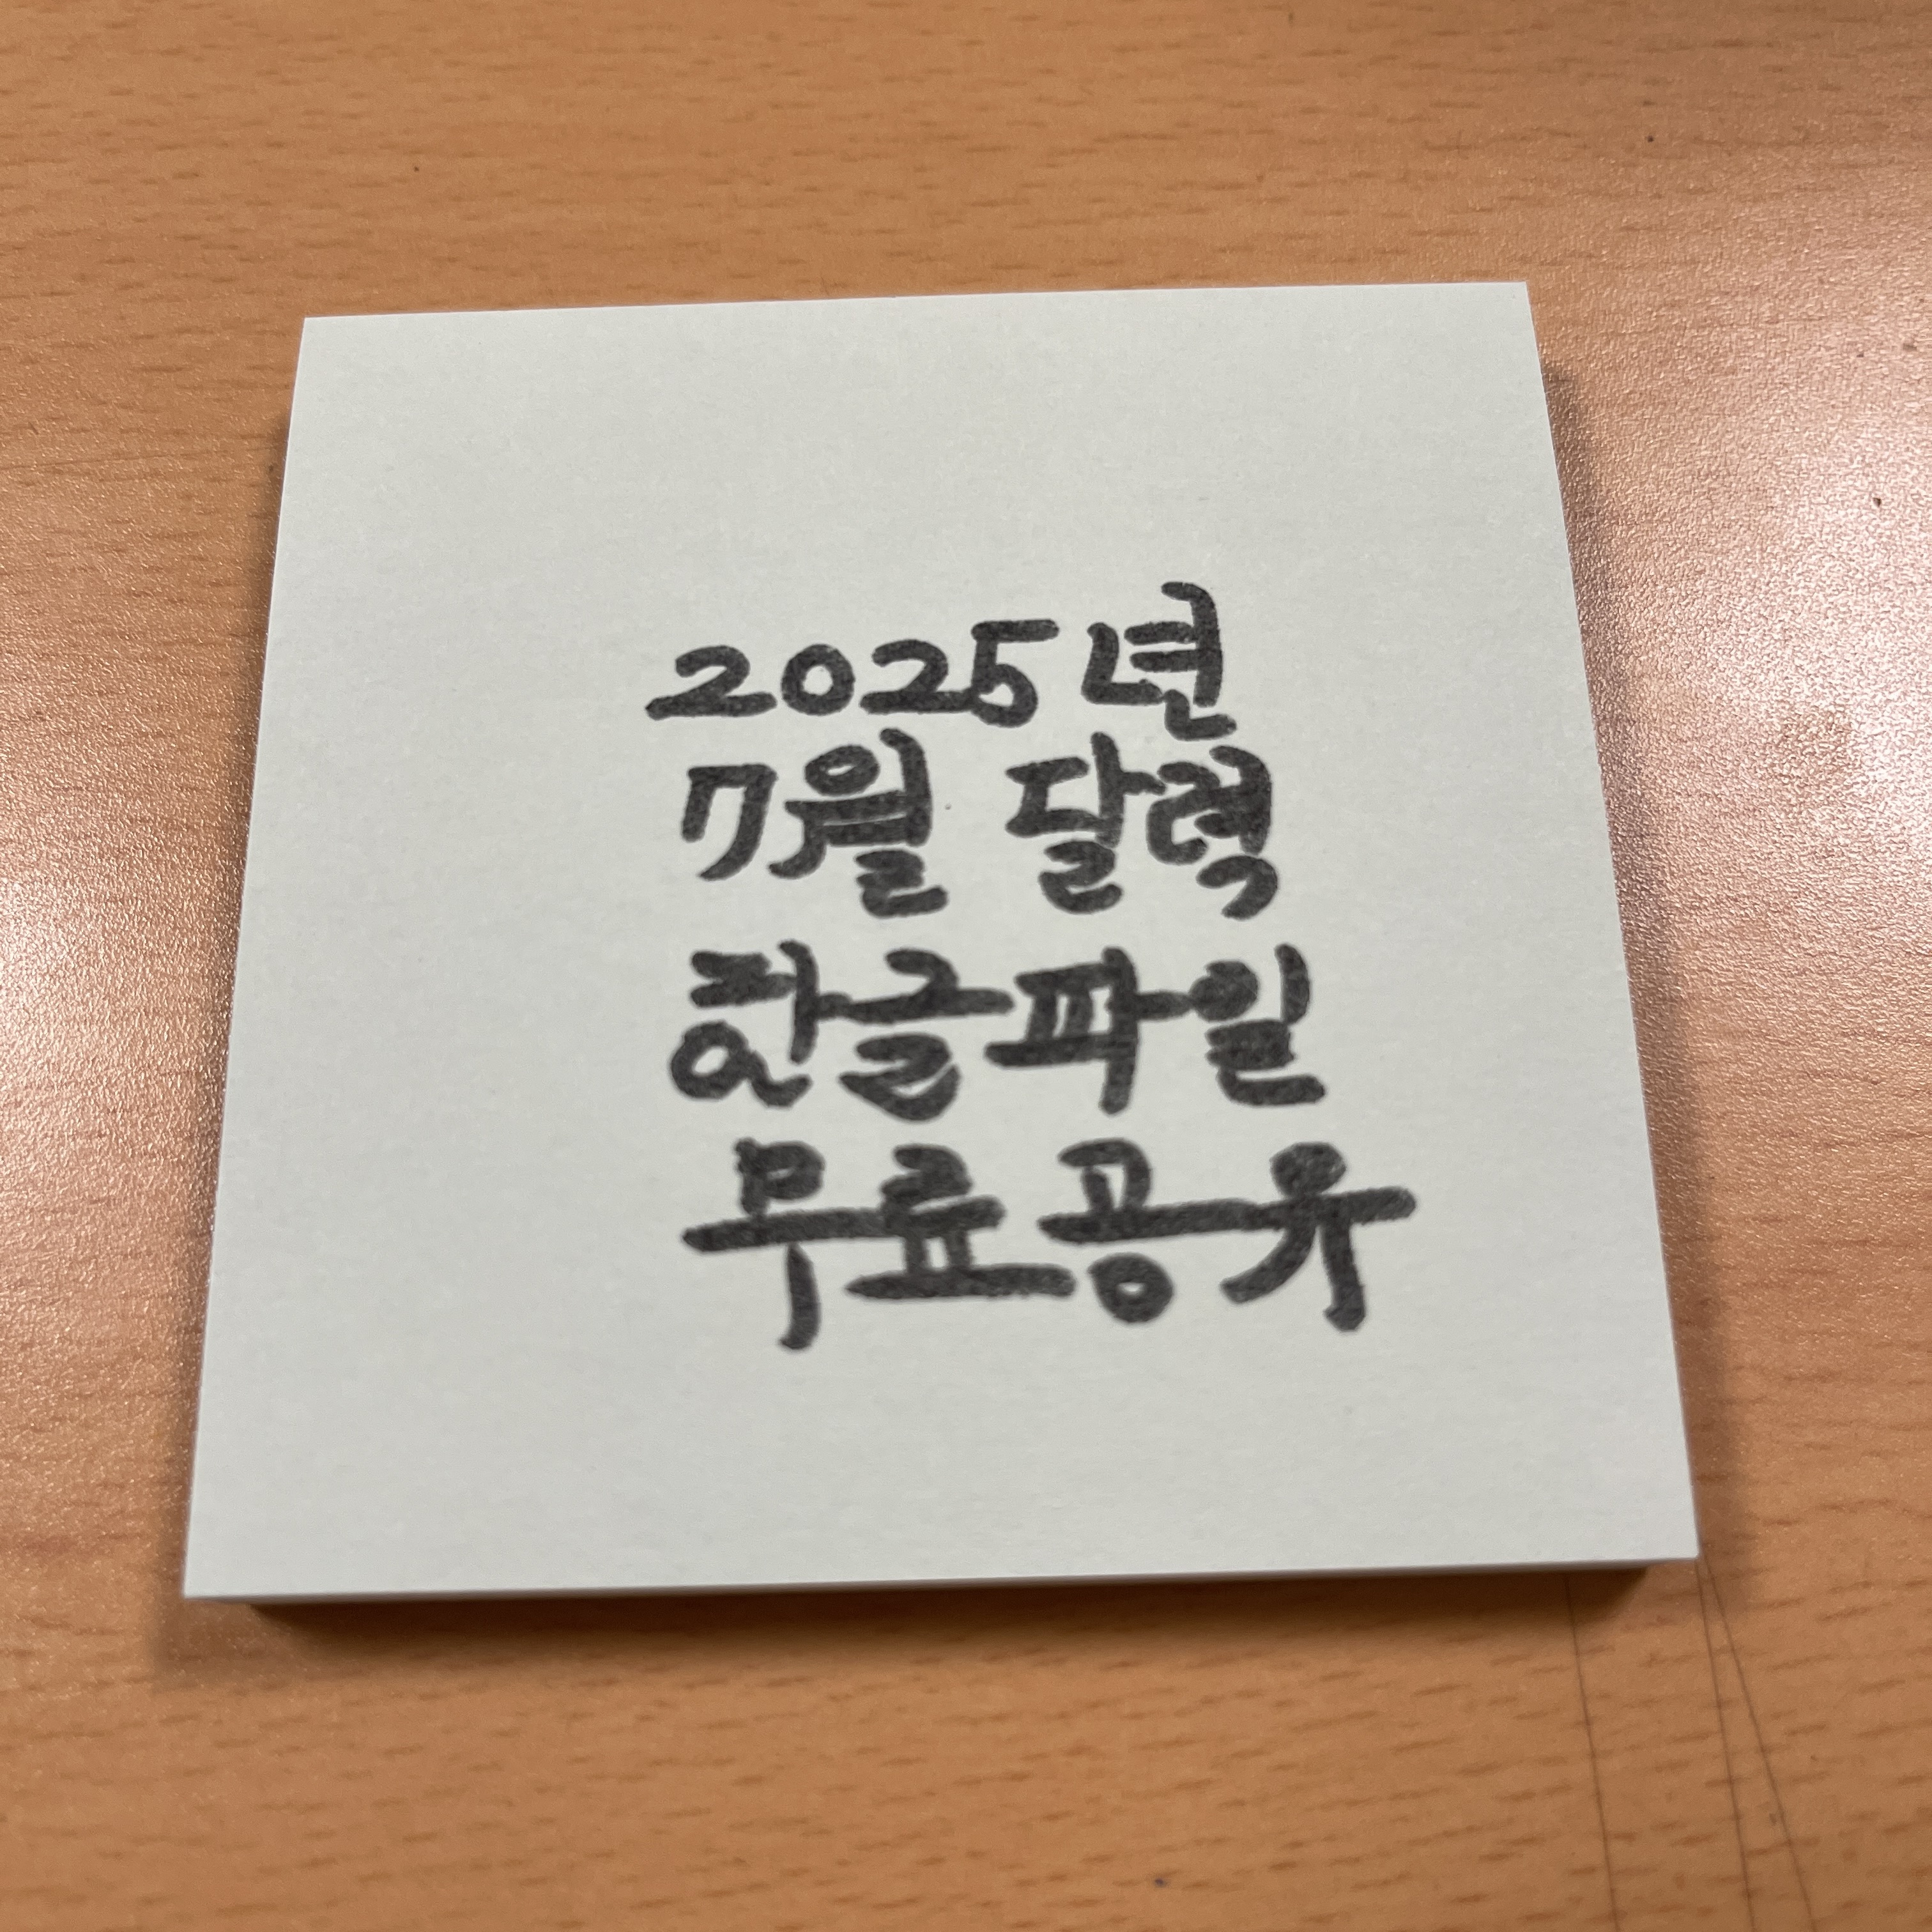 2025년
7월 달력
한글파일
무료공유